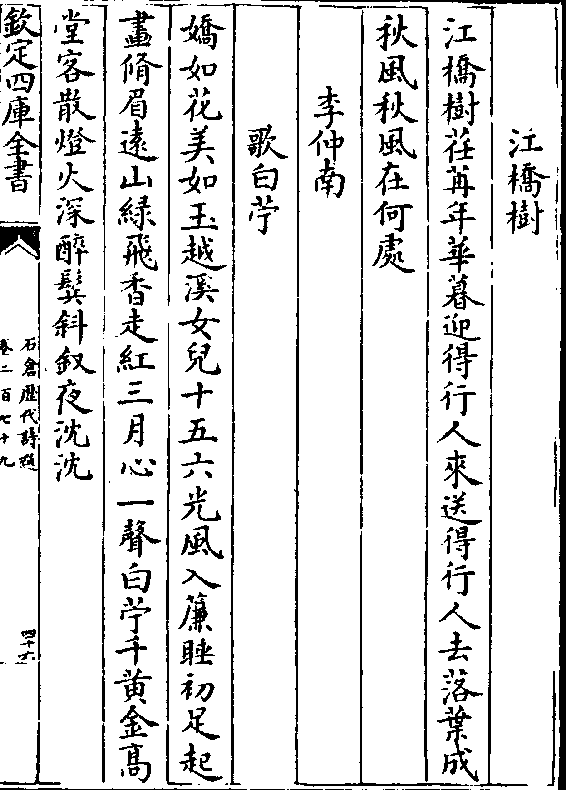 江橋樹
江橋樹荏苒年華暮迎得行人來送得行人去落葉成
秋風秋風在何處
李仲南
歌白苧
嬌如花美如玉越溪女兒十五六光風入簾睡初足起
畫脩眉遠山緑飛香走紅三月心一聲白苧千黄金髙
堂客散燈火深醉鬂斜釵夜沈沈
欽定四庫全書
石倉歴代詩選
卷二百七十九
四十六